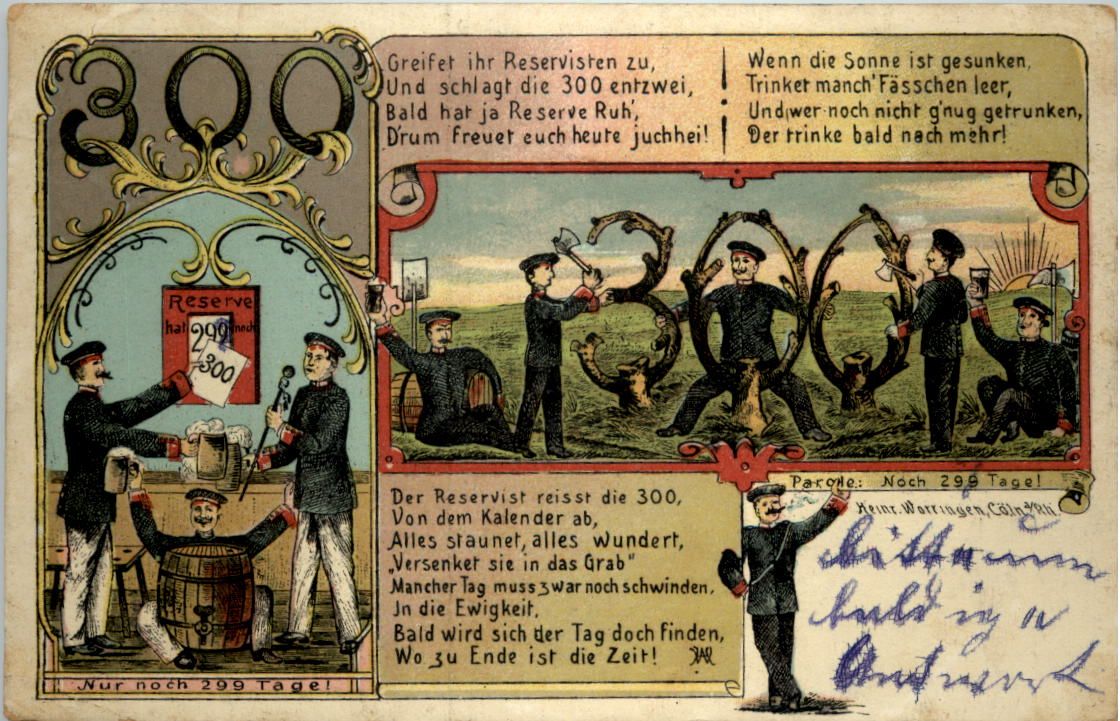 300
Reserve
hat 299 noch
300
Nur noch 299 Tage!
Greifet ihr Reservisten zu,
Und schlagt die 300 entzwei,
Bald hat ja Reserve Ruh',
D'rum freuet euch heute juchhei!
Wenn die Sonne ist gesunken,
Trinket manch' Fässchen leer,
Und wer noch nicht g'nug getrunken,
Der trinke bald nach mehr!
300
Der Reservist reisst die 300,
Von dem Kalender ab,
Alles staunet, alles wundert,
„Versenket sie in das Grab"
Mancher Tag muss zwar noch schwinden,
Jn die Ewigkeit,
Bald wird sich der Tag doch finden,
Wo zu Ende ist die Zeit!
Parole: Noch 299 Tage!
Heinr. Worringen, Cöln a/Rh.
bitte um
baldige
Antwort